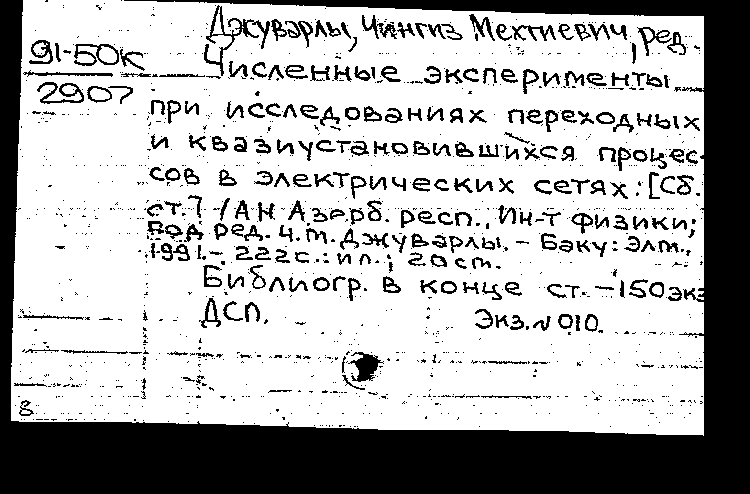 Джуварлы, Чингиз Мехтиевич, ред.
91-50к
2907
Численные эксперименты
при исследованиях переходных
и квазиустановившихся процес-
сов в электрических сетях: [Сб.
ст.] / АН Азерб. респ., Ин-т физики;
Под ред. Ч.М. Джуварлы. – Баку: Элм.,
1991. – 222 с.: ил.; 20 cm.
Библиогр. в конце ст. – 150 экз
ДСП. Экз. N 010.
8